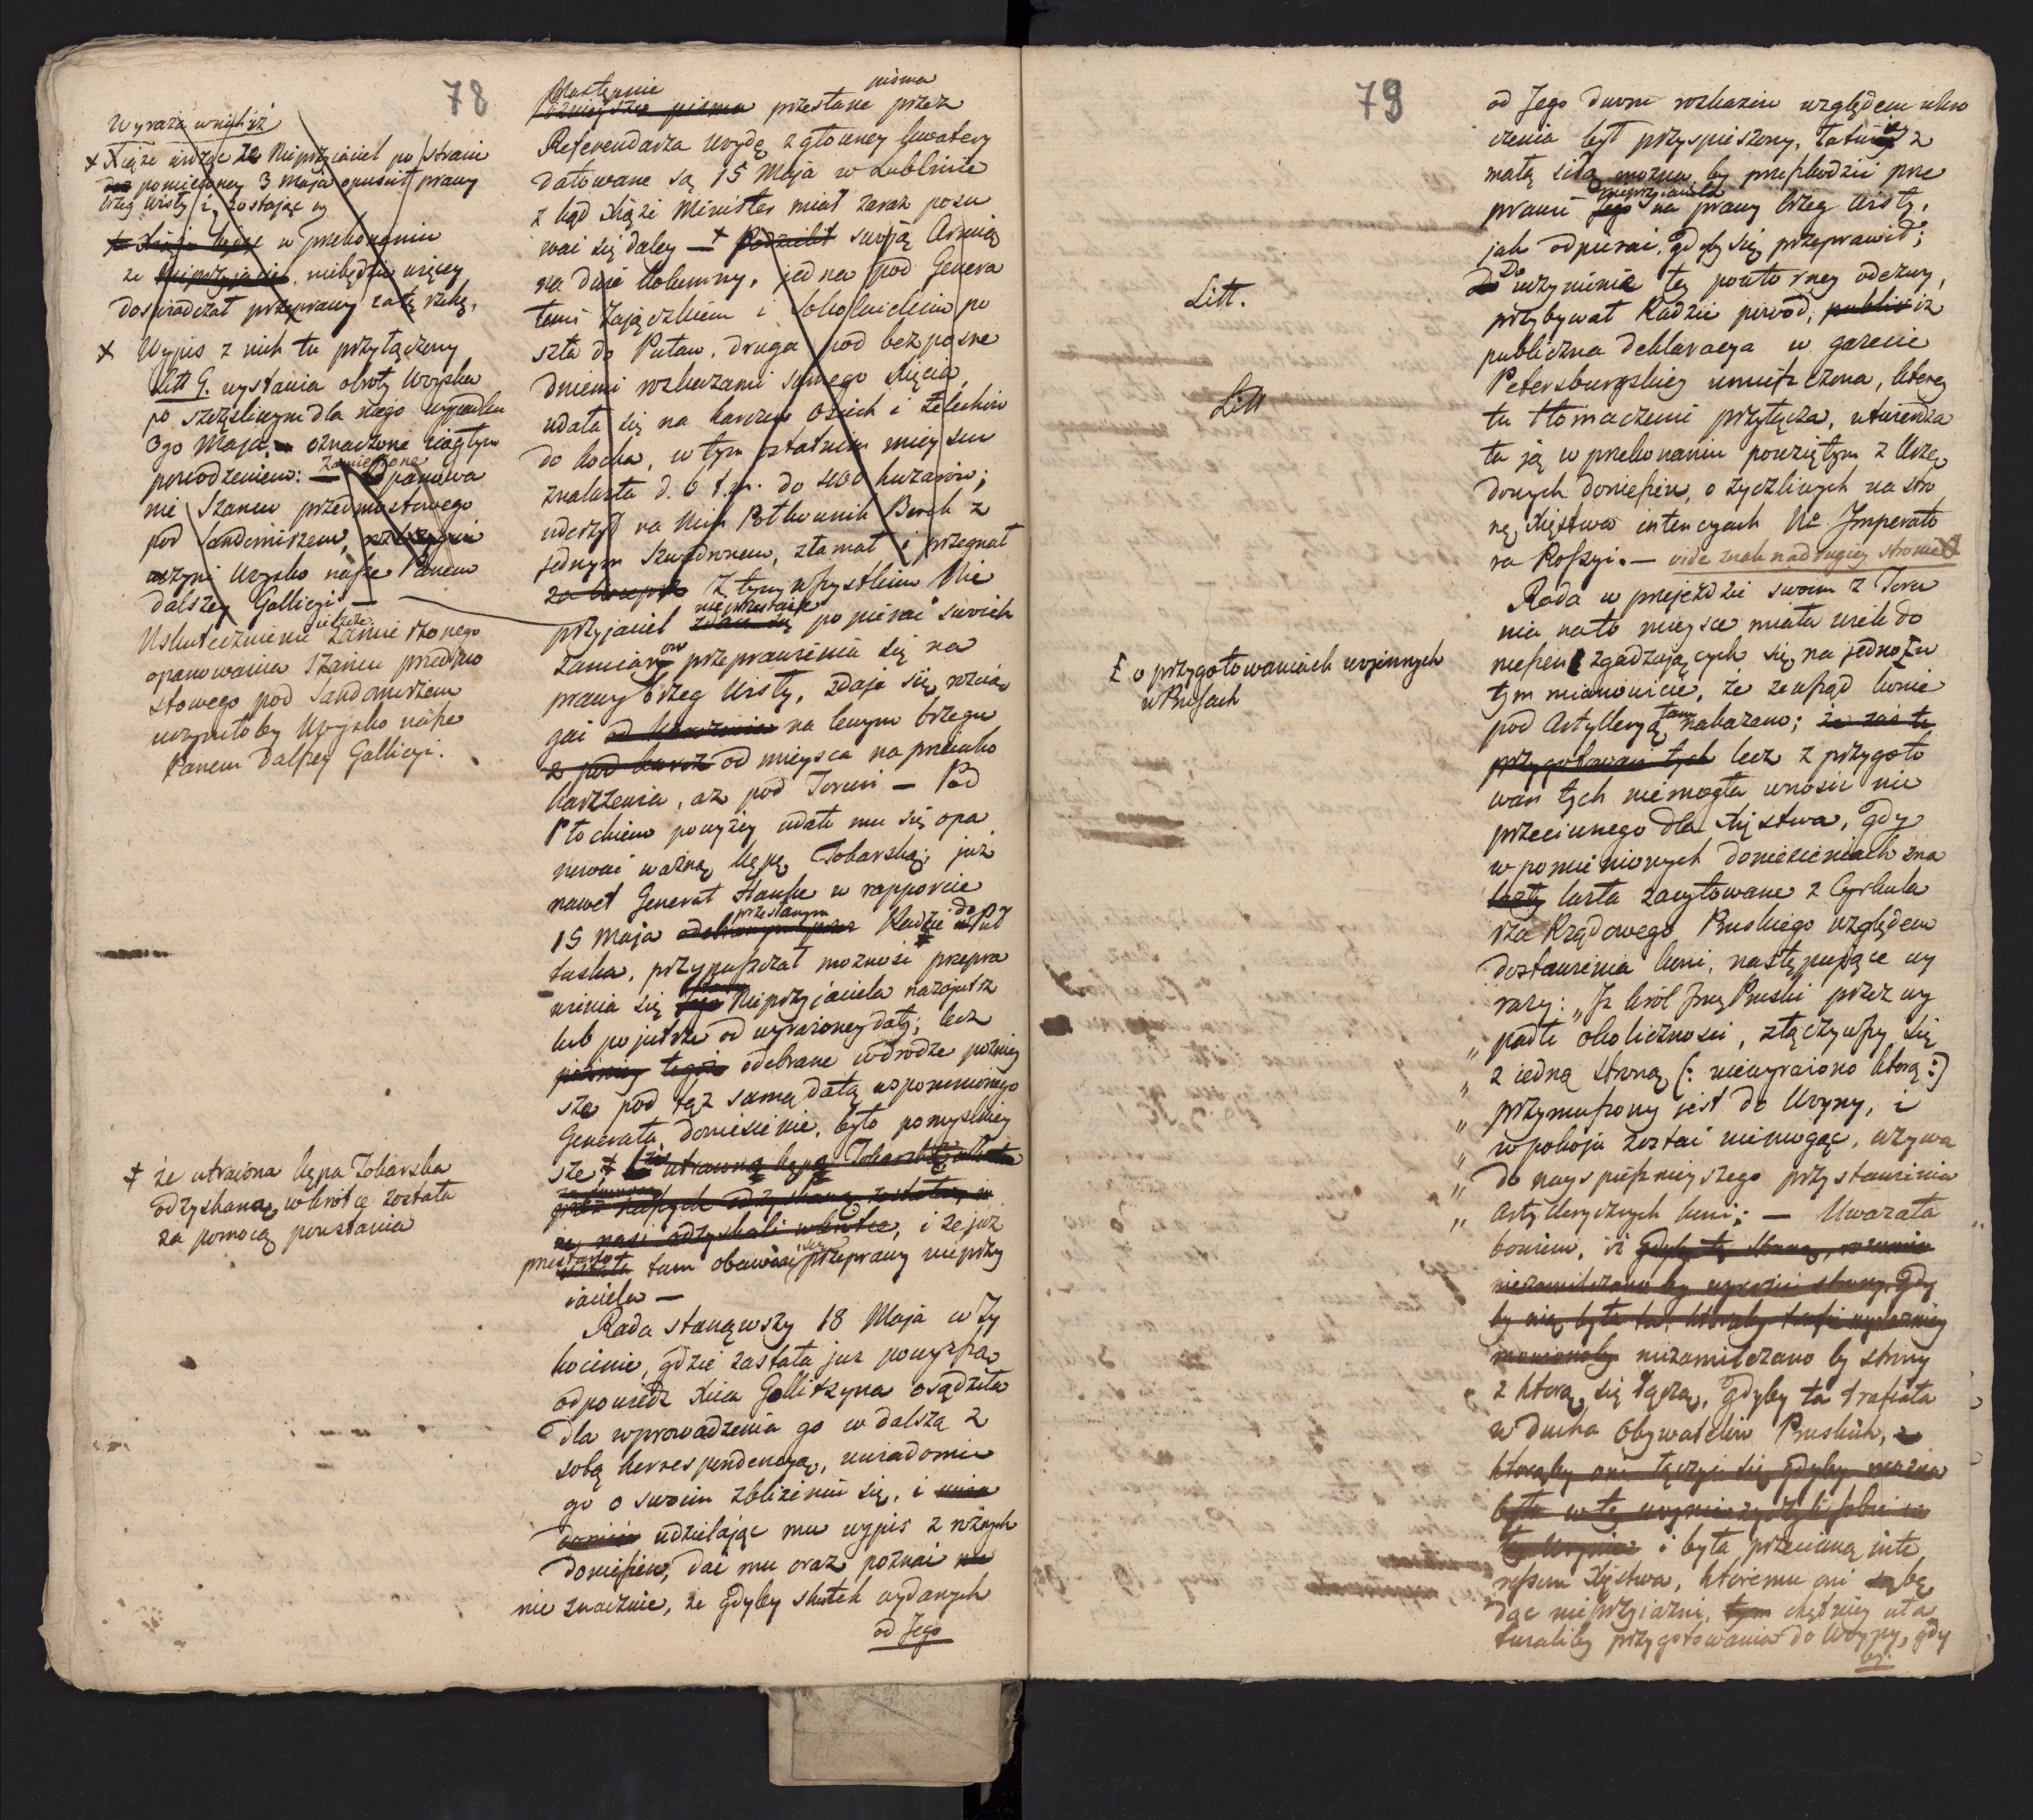 78
Wyraża w nich iż
+ Xiąże widząc że Nieprzyjaciel po stracie
pomienioney 3 Maja opuścił prawy
brzeg Wisły i zostając w
w przekonaniu
że Nieprzyjaciel niebędzie więcey
doświadczał przeprawy za tę rzekę,
+ Wypis z nich tu przyłączony
Litt G. wystawia obroty Woyska
po szczęśliwym dla niego wypadku
3go Maja, oznaczone ciągłym
powodzeniem: — zamierzone opanowa
nie Szańcu przedmostowego
pod Sandomirzem,
uczyni Woysko nasze Panem
dalszey Gallicyi. —
Uskutecznienie jeszcze zamierzonego
opanowania Szańcu przedmo
stowego pod Sandomirzem
uczyniłoby Woysko nasze
Panem dalszey Gallicyi.
+ że utracona kępa Tobarska
odzyskaną wkrótce została
za pomocą powstania
Następnie pisma
późniejsze pisma przesłane przez
Referendarza Woydę z głowney kwatery
datowane są 15 Maja w Lublinie
z kąd Xiąże Minister miał zaraz posu
wać się daley — + Podzielił swoją Armią
na dwie kolumny, jedna pod Genera
łami Zajączkiem i Sokolnickiem po
szła do Puław, druga pod bezpośre
dniemi rozkazami samego Xięcia,
udała się na Karczew Osieck i Żelechów
do Kocka, w tym ostatnim mieyscu
znalazła d. 6 t. m. do 400 huzarów;
uderzył na nich Półkownik Berek z
jednym Szwadronem, złamał i przegnał
Z tym wszystkiem Nie
przyjaciel nieprzestaie popierać swoich
zamiarów przeprawienia się na
prawy brzeg Wisły, zdaje się rozcią
gać od na lewym brzegu
z pod od mieysca naprzeciwko
Karczewia, aż pod Toruń — Pod
Płockiem powyżey udało mu się opa
nować ważną kępę Tobarską; już
nawet Generał Hauke w rapporcie
15 Maja przesłanym Radzie do Puł
tuska, przypuszczał możność przepra
wienia się Nieprzyjaciela nazajutrz
lub pojutrze od wyrażoney daty; lecz
później tegoż odebrane w drodze późniey
sze pod tąż samą datą wspomnionego
Generała doniesienie, było pomyślniey
sze, + że utracona kępa Tobarska
odzyskaną została
że nasi odzyskali wkrótce, i że już
przestano tam obawiać się przeprawy nieprzy
iaciela —
Rada stanąwszy 18 Maja w Ty
kocinie, gdzie zastała już powyższą
odpowiedź Xcia Gallitzyna osądziła
dla wprowadzenia go w dalszą z
sobą korrespondencyą, uwiadomić
go o swoim zbliżeniu się, i
udzielając mu wypis z różnych
doniesień, dać mu oraz poznać
nieznacznie, że gdyby skutek wydanych
od Jego
79
Litt.
Litt
Ł o przygotowaniach wojennych
w Prusach
od Jego Dworu rozkazów względem wkro
czenia był przyspieszony, łatwiey z
małą siłą można by przeszkodzić prze
prawie nieprzyjaciela na prawy brzeg Wisły,
jak odpierać, gdyby się przeprawił;
Do uczynienia tey powtórney odezwy,
przybywał Radzie powód, iż
publiczna deklaracya w gazecie
Petersburgskiey umieszczona, którey
tu tłomaczenie przyłącza, utwierdza
ła ją w przekonaniu powziętym z Urzę
downych doniesień, o życzliwych na stro
nę Xięstwa intencyach No Imperato
ra Rossyi. — vide znak na drugiey stronie
Rada w przejeździe swoim z Toru
nia na to mieysce miała wiele do
niesień zgadzających się na jedno Ł w
tym mianowicie, że zewsząd konie
pod Artylleryą tam nakazano; że zaś te
przygotowań tych lecz z przygoto
wań tych niemogła wnosić nic
przeciwnego dla Xięstwa, gdy
w pomienionych doniesieniach zna
lazły lazła zacytowane z Cyrkula
rza Rządowego Pruskiego względem
dostawienia koni, następujące wy
razy: „Iż król Jmć Pruski przez wy
„ padłe okoliczności, złączywszy się
„ z iedną stroną (: niewyrażono którą :)
„ przymuszony jest do Woyny, i
„ w pokoju zostać niemogąc, wzywa
„ do nayspieszniejszego przystawienia
„ Artyllerycznych koni; — Uważała
bowiem, iż gdyby tę stronę,
niezamilczano by wyrazić strony, gdy
by nią była ta, któraby
mowionoby niezamilczano by strony
z którą się łączą, gdyby ta trafiała
w ducha Obywatelów Pruskich,
któraby oni łączyć się gdyby można
było w tey woynie
tey Woynie i była przeciwną inte
ressom Xięstwa, któremu oni bę
dąc nieprzyiaźni, chętniey uła
twialiby przygotowania do Woyny, gdy
by